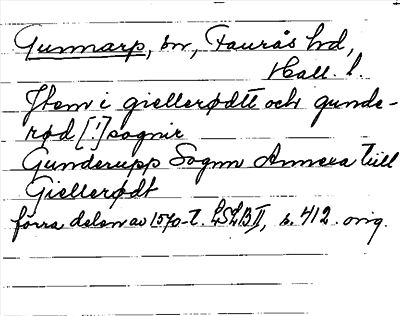 Gunnarp, sn, Faurås hd,
Hall. l.
Jtem i giellerødtt och gunde-
rød [!] sognir
Gunderupp Sognn Annexa till
Giellerødt
förra delen av 1570-t. LSLB II, s. 412. orig.